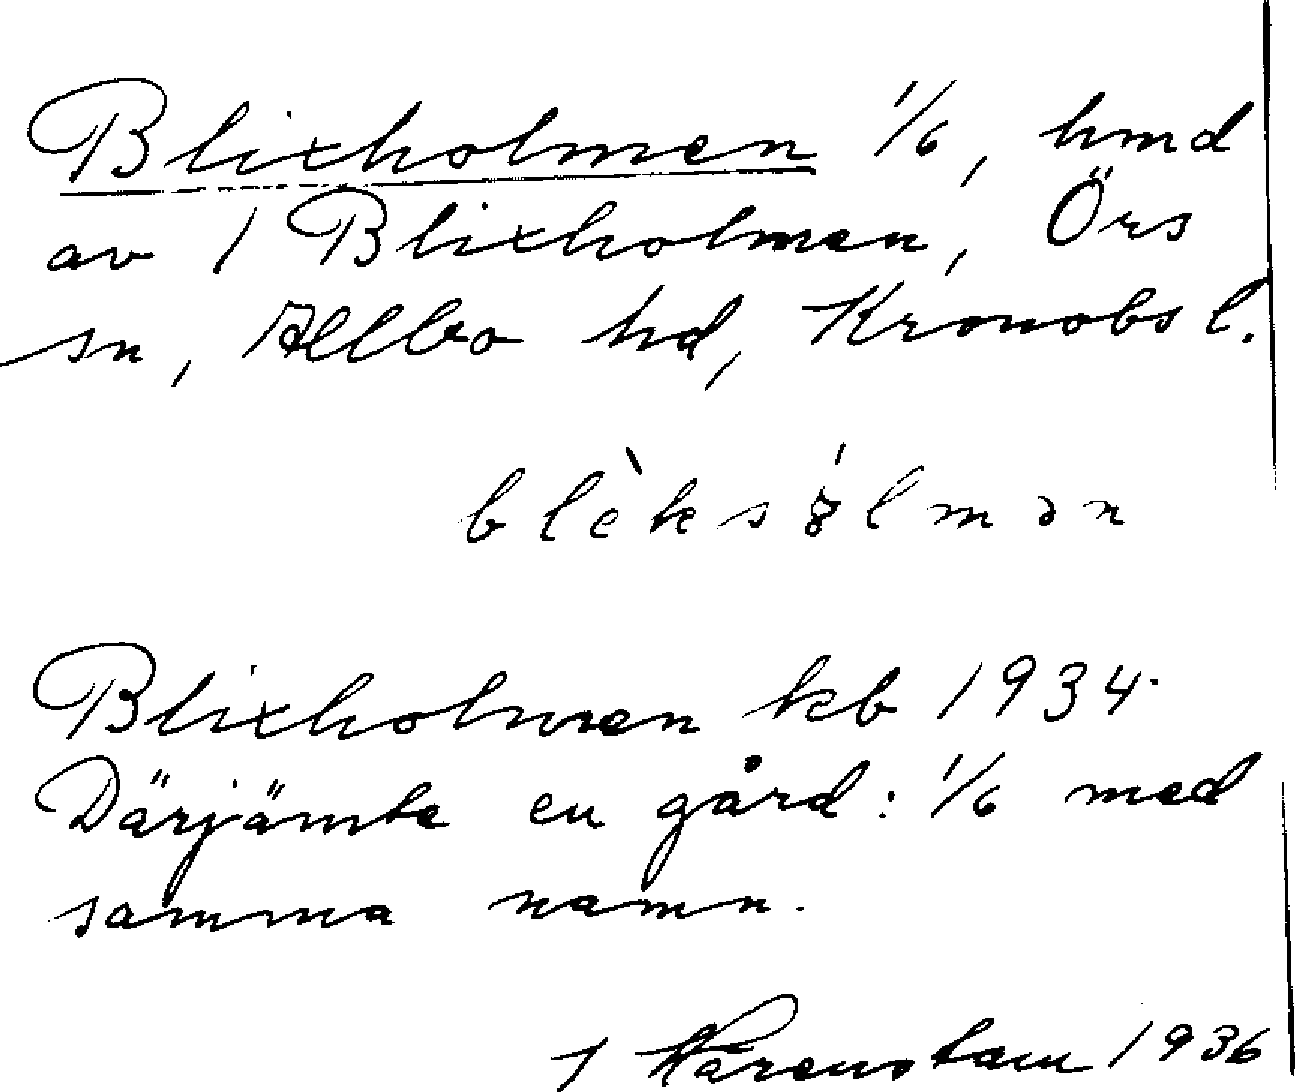 Blixholmen 1/6, hmd
av 1 Blixholmen, Örs
sn, Allbo hd, Kronobs l.
blèksə̣́lmən
Blixholmen kb 1934.
Därjämte en gård: 1/6 med
samma namn.
1936